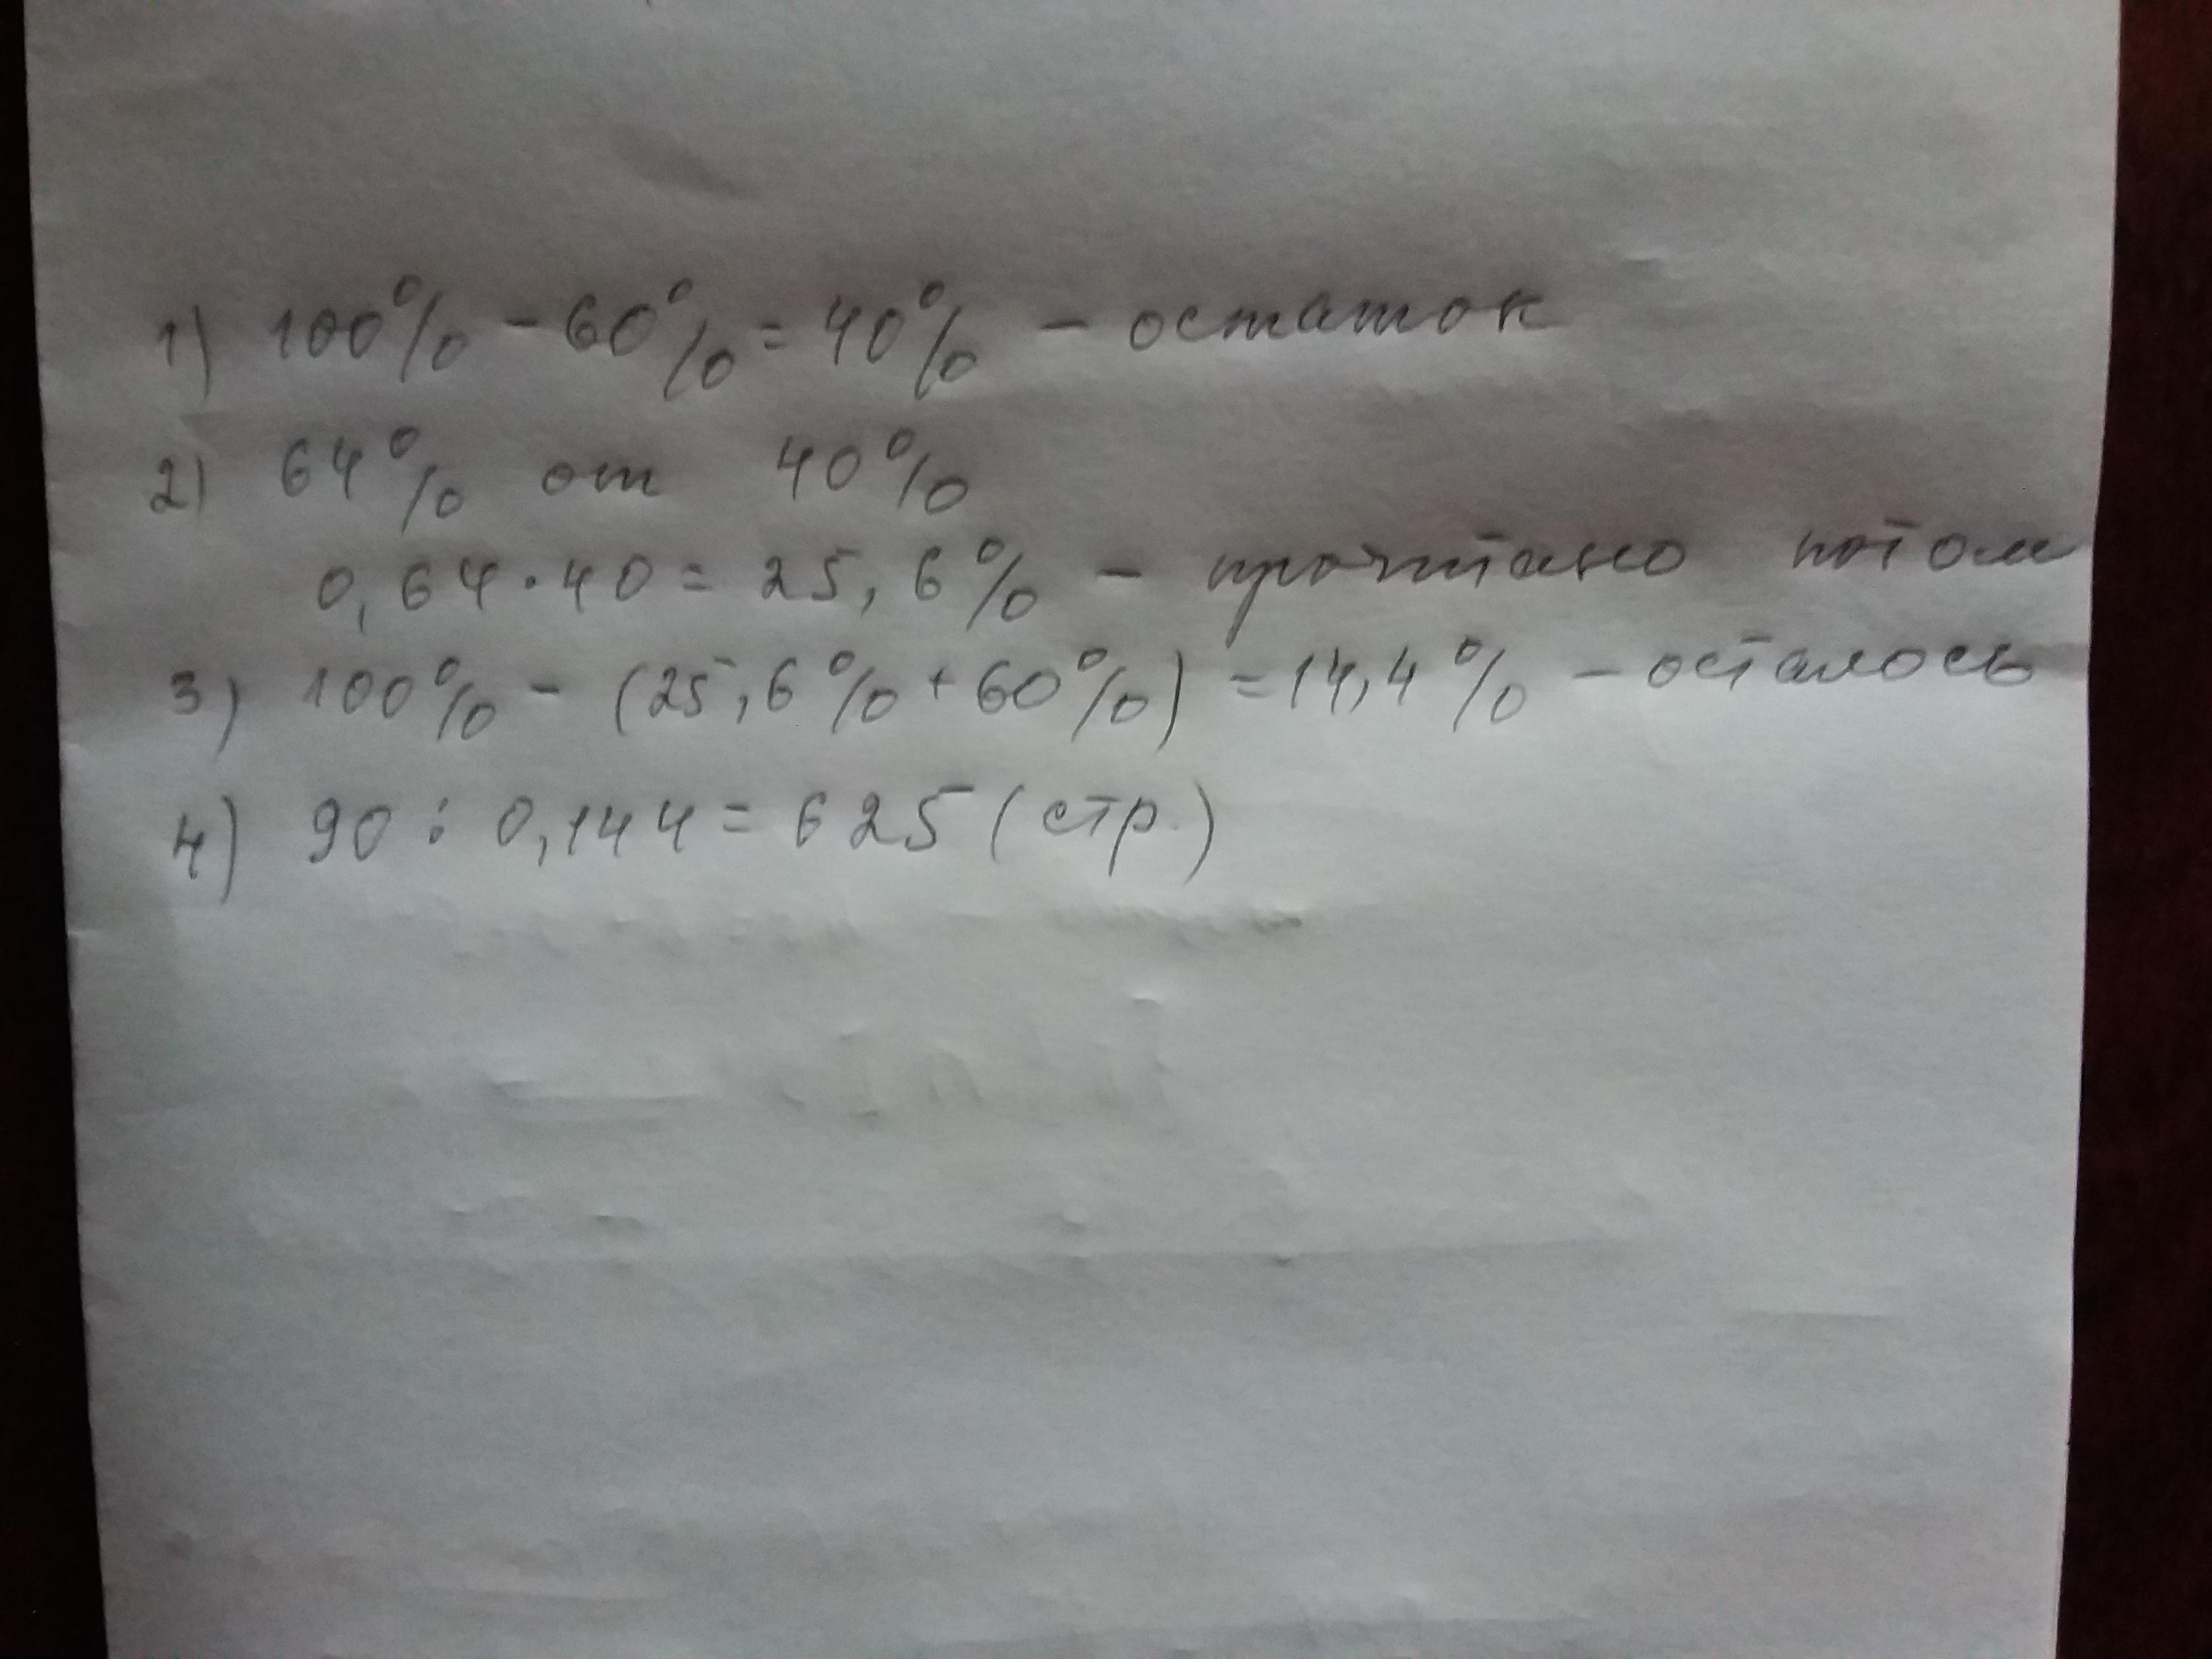 1) 100% - 60% = 40% - остаток
2) 64% от 40%
0,64 · 40 = 25,6% - прочитано потом
3) 100% - (25,6% + 60%) = 14,4% - осталось
4) 90 : 0,144 = 625 (стр.)